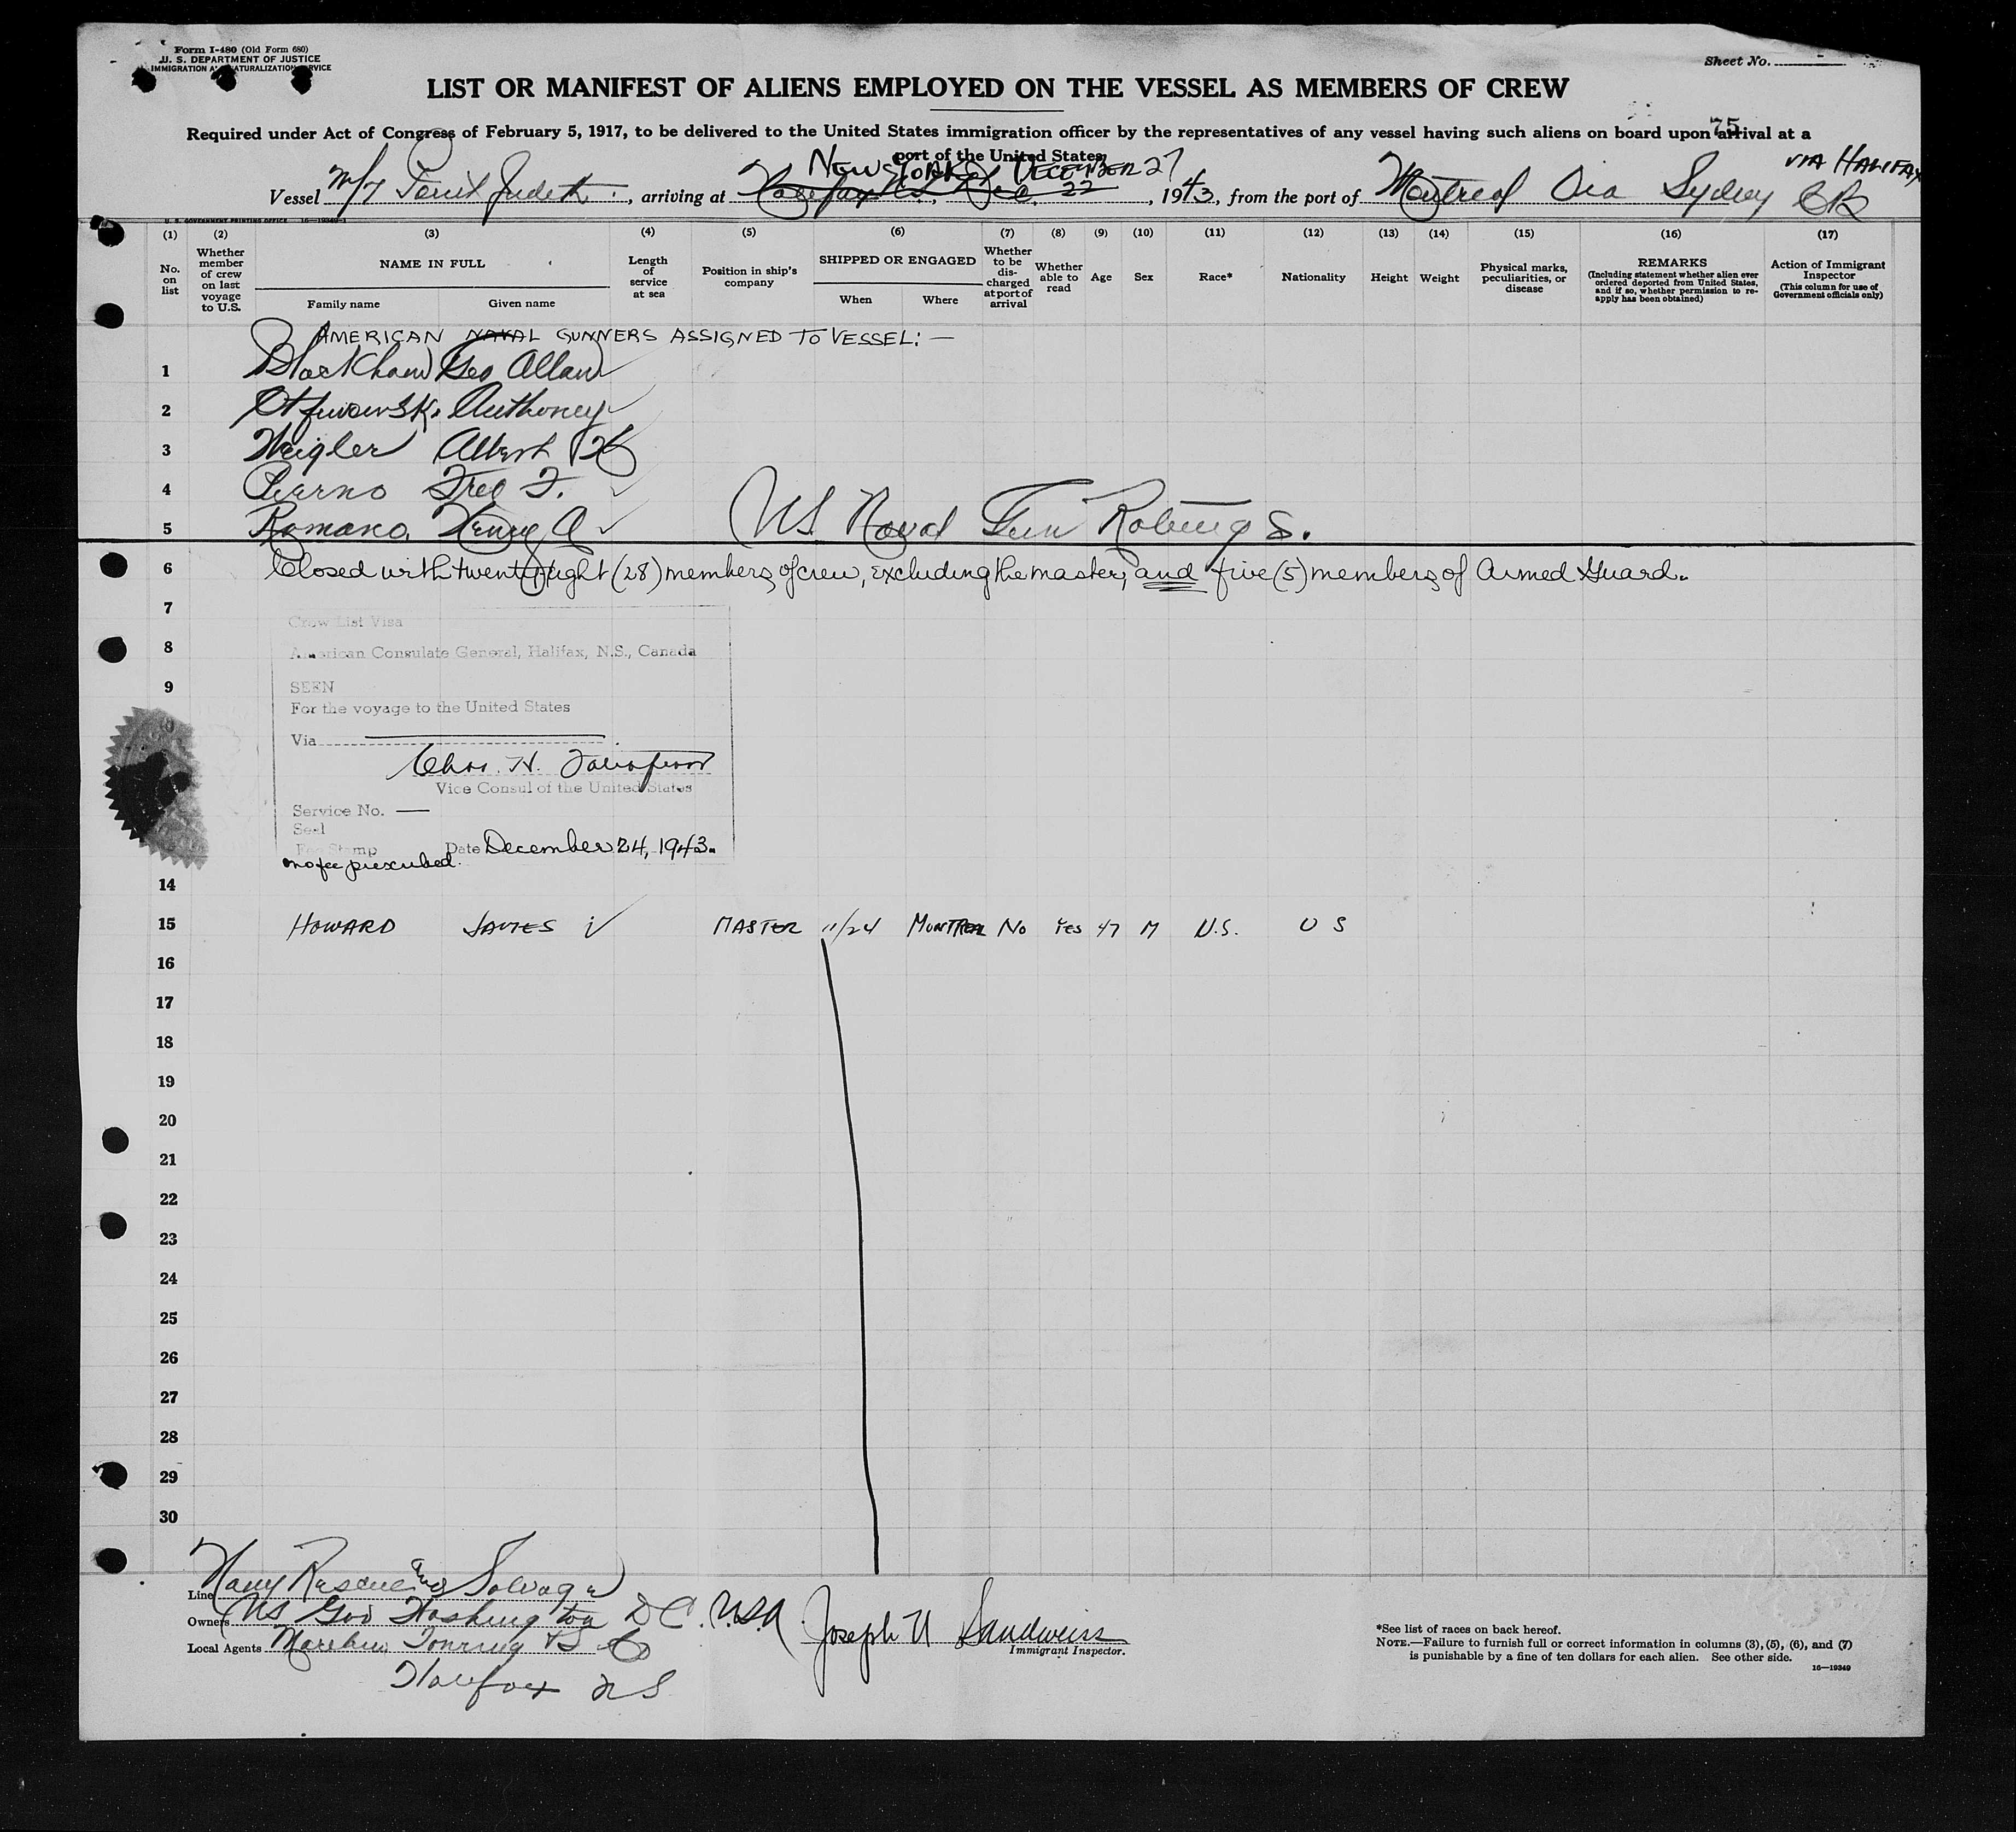 Form I-480 (Old Form 680)
U. S. DEPARTMENT OF JUSTICE
IMMIGRATION AND NATURALIZATION SERVICE
Sheet No.
LIST OR MANIFEST OF ALIENS EMPLOYED ON THE VESSEL AS MEMBERS OF CREW
75
Required under Act of Congress of February 5, 1917, to be delivered to the United States immigration officer by the representatives of any vessel having such aliens on board upon arrival at a
port of the United States
NEW YORK DECEMBER 27 VIA HALIFAX
Vessel Point Judith, arriving at Halifax N.S, Dec. 22, 1943, from the port of Montreal Via Sydney CB
U. S. GOVERNMENT PRINTING OFFICE 16—19349-1
(1) (2) (3) (4) (5) (6) (7) (8) (9) (10) (11) (12) (13) (14) (15) (16) (17)
No. on list
Whether member of crew on last voyage to U.S.
NAME IN FULL
Family name Given name
Length of service at sea
Position in ship's company
SHIPPED OR ENGAGED
When Where
Whether to be discharged at port of arrival
Whether able to read
Age
Sex
Race*
Nationality
Height
Weight
Physical marks, peculiarities, or disease
REMARKS
(Including statement whether alien ever ordered deported from United States, and if so, whether permission to reapply has been obtained)
Action of Immigrant Inspector
(This column for use of Government officials only)
AMERICAN NAVAL GUNNERS ASSIGNED TO VESSEL:—
1 Blackham Geo Allan
2 Anthoney
3 Weigler Albert
4 Fred F.
5 Romano, Henry A US Naval Gun
6 Closed with twenty eight (28) members of crew, excluding the master, and five (5) members of Armed Guard.
7
Crew List Visa
8
American Consulate General, Halifax, N.S., Canada
9
SEEN
For the voyage to the United States
Via
Chas. H.
Vice Consul of the United States
Service No. —
Seal
Fee Stamp Date December 24, 1943.
no fee prescribed.
14
15 HOWARD JAMES MASTER 11/24 MONTREAL No Yes 47 M U.S. U S
16
17
18
19
20
21
22
23
24
25
26
27
28
29
30
Line Navy Rescue and Salvage
Owners US Gov Washington DC. USA
Local Agents
Halifax NS
Joseph N Sandweiss
Immigrant Inspector.
*See list of races on back hereof.
NOTE.—Failure to furnish full or correct information in columns (3), (5), (6), and (7)
is punishable by a fine of ten dollars for each alien. See other side.
16—19349